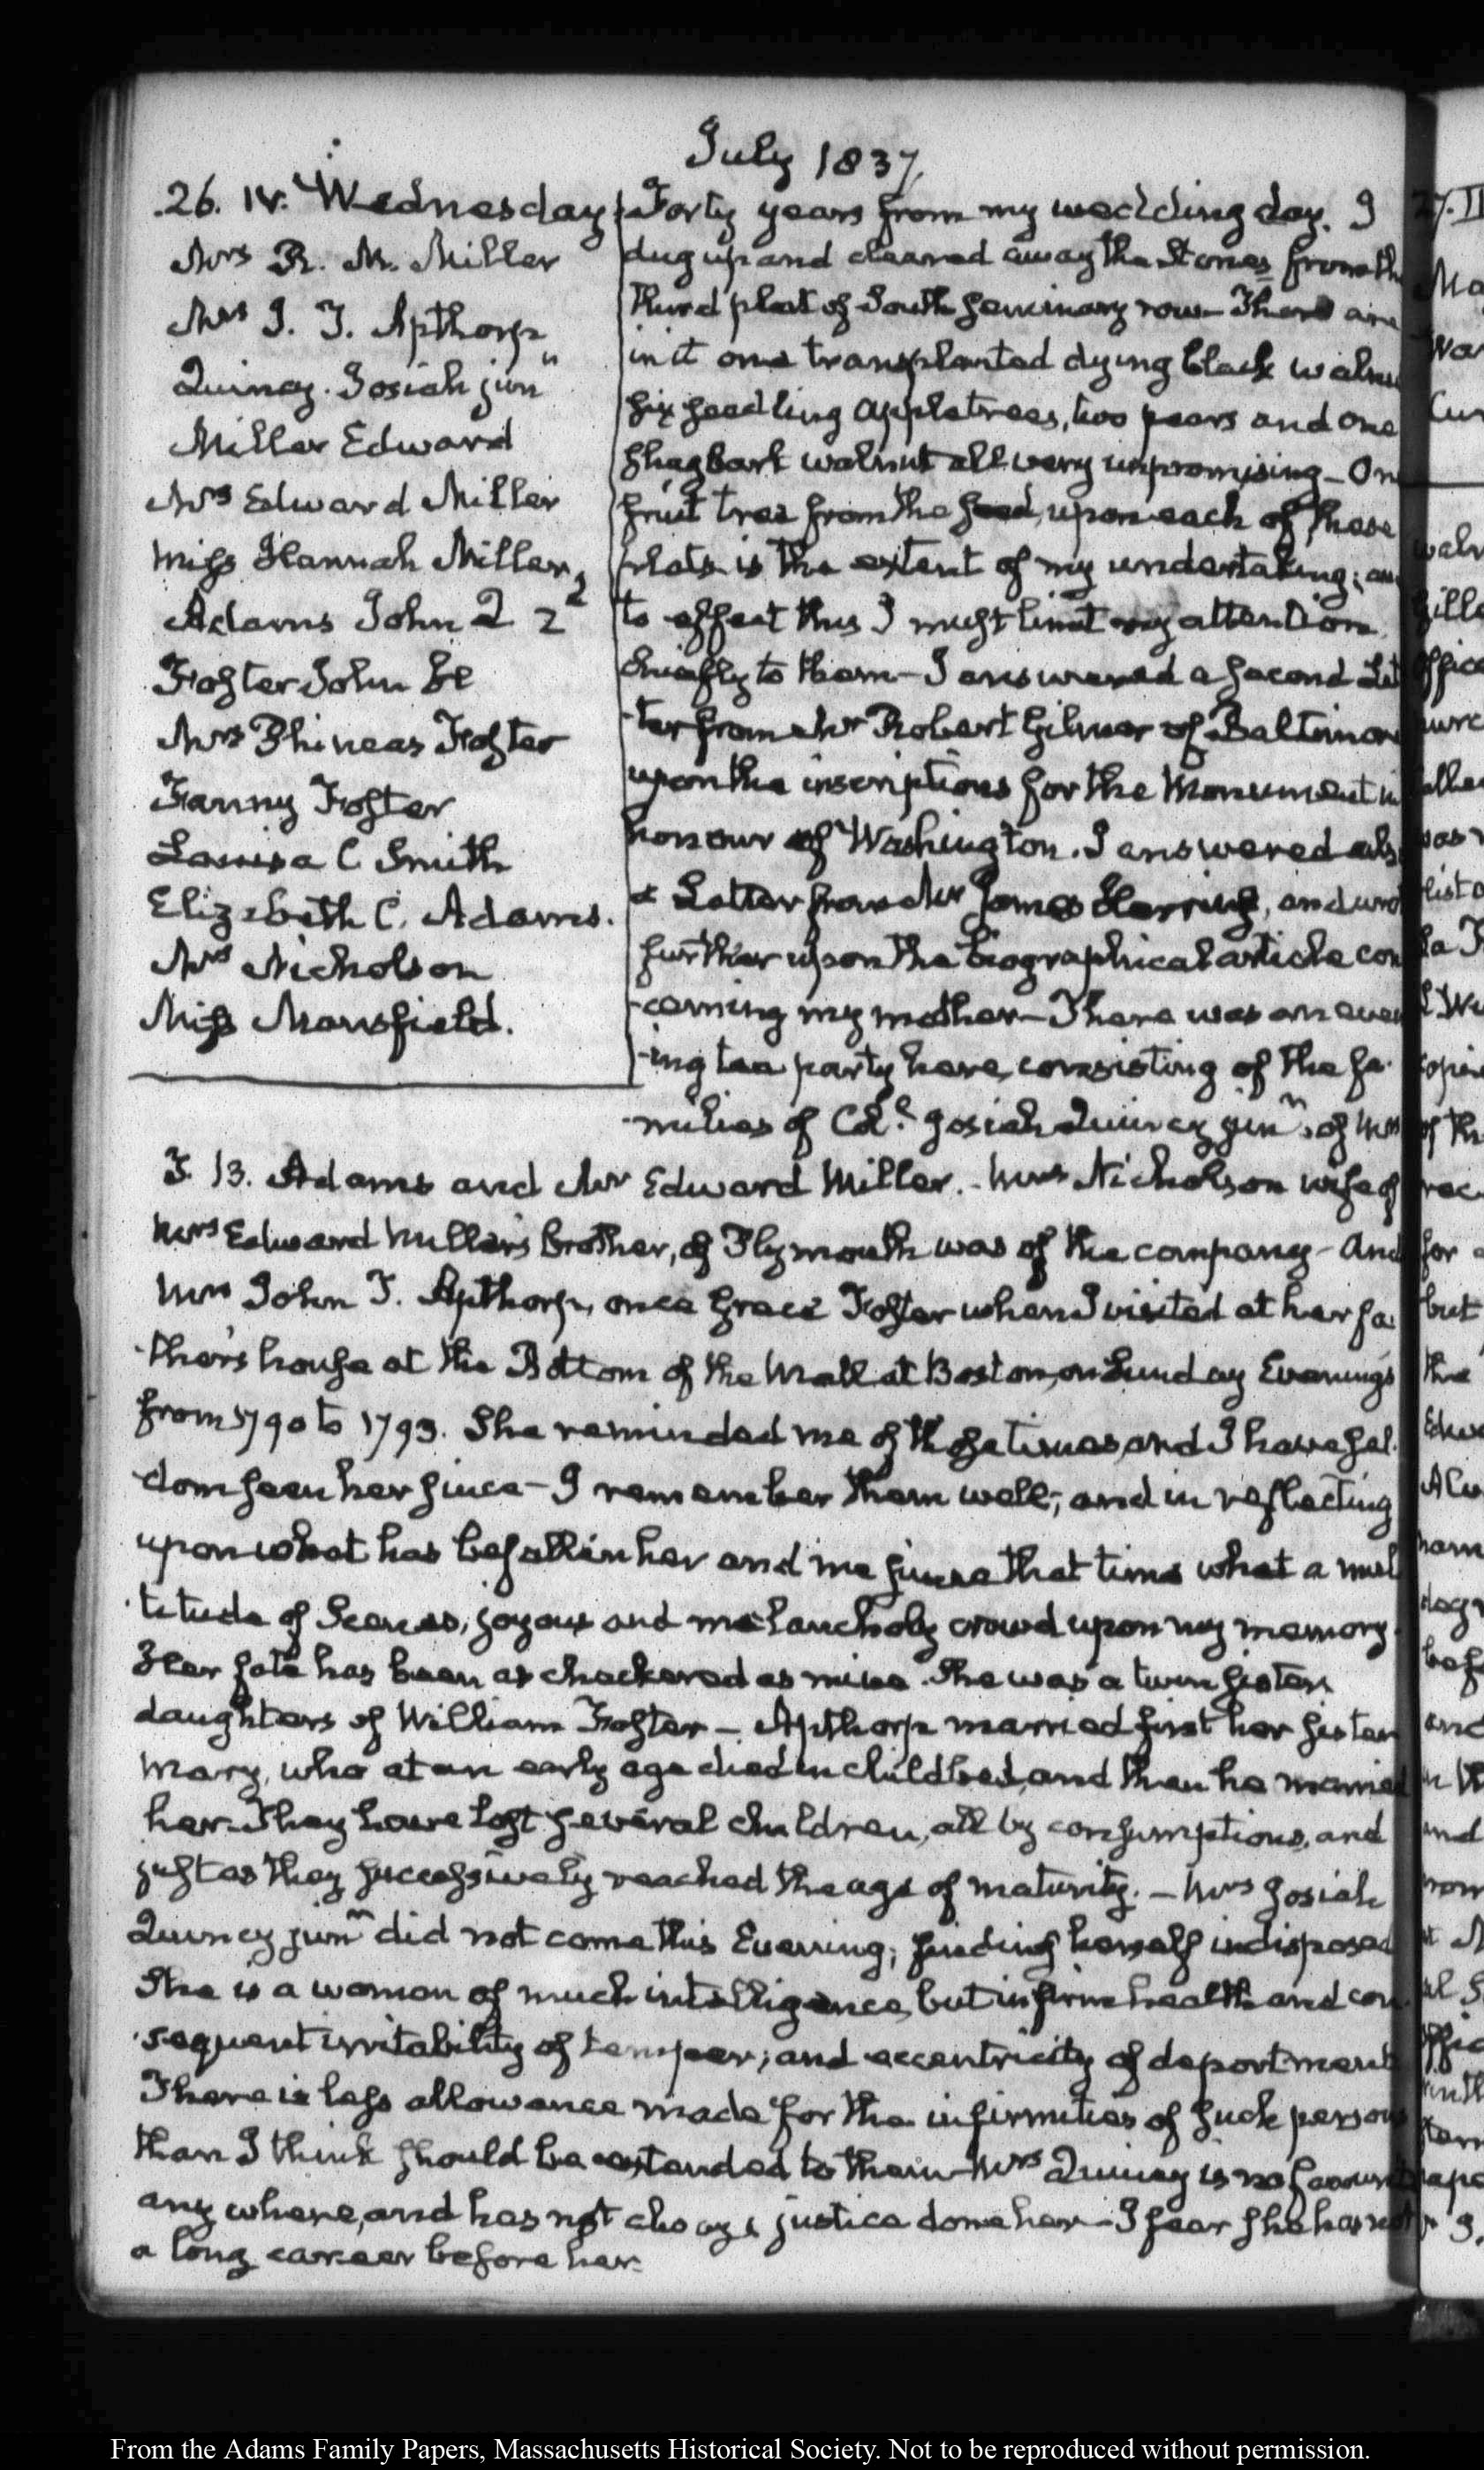 July 1837.
26. IV. Wednesday
Mrs R. M. Miller
Mrs J. T. Apthorp
Quincy. Josiah junr
Miller Edward
Mrs Edward Miller
Miss Hannah Miller,
Adams John Q 2d
Foster John H
Mrs Phineas Foster
Fanny Foster
Louisa C Smith
Elizabeth C. Adams.
Mrs Nicholson
Miss Mansfield.
Forty years from my wedding day. I
dug up and cleared away the Stones from th
third plat of South Seminary row— There are
in it one transplanted dying black walnu
six seedling apple trees, two pears and one
shagbark walnut all very unpromising— On
fruit tree from the seed, upon each of these
plats is the extent of my undertaking; an
to effect this I must limit my attention
chiefly to them— I answered a second Let
-ter from Mr Robert Gilmor of Baltimore
upon the inscriptions for the Monument in
honour of Washington. I answered als
a Letter from Mr James Herring, and wrot
further upon the biographical article con
-cerning my mother— There was an even
-ing tea party here, consisting of the fa-
-milies of Coll. Josiah Quincy junr, of Mrs
T. B. Adams and Mr Edward Miller.— Mrs Nicholson wife of
Mrs Edward Miller's brother, of Plymouth was of the company— And
Mrs John T. Apthorp, once Grace Foster when I visited at her fa-
-ther's house at the Bottom of the Mall at Boston, on Sunday Evenings
from 1790 to 1793. She reminded me of those times, and I have sel-
-dom seen her since— I remember them well; and in reflecting
upon what has befallen her and me since that time what a mul
-titude of Scenes, joyous and melancholy crowd upon my memory.
Her fate has been as checkered as mine. She was a twin sister
daughters of William Foster— Apthorp married first her sister
Mary, who at an early age died in childbed, and then he married
her. They have lost several children, all by consumptions, and
just as they successively reached the age of maturity.— Mrs Josiah
Quincy junr did not come this Evening; finding herself indisposed
She is a woman of much intelligence, but infirm health and con-
-sequent irritability of temper; and eccentricity of deportment
There is less allowance made for the infirmities of such persons
than I think should be extended to them— Mrs Quincy is no favourite
any where, and has not always justice done her— I fear she has not
a long career before her.
From the Adams Family Papers, Massachusetts Historical Society. Not to be reproduced without permission.